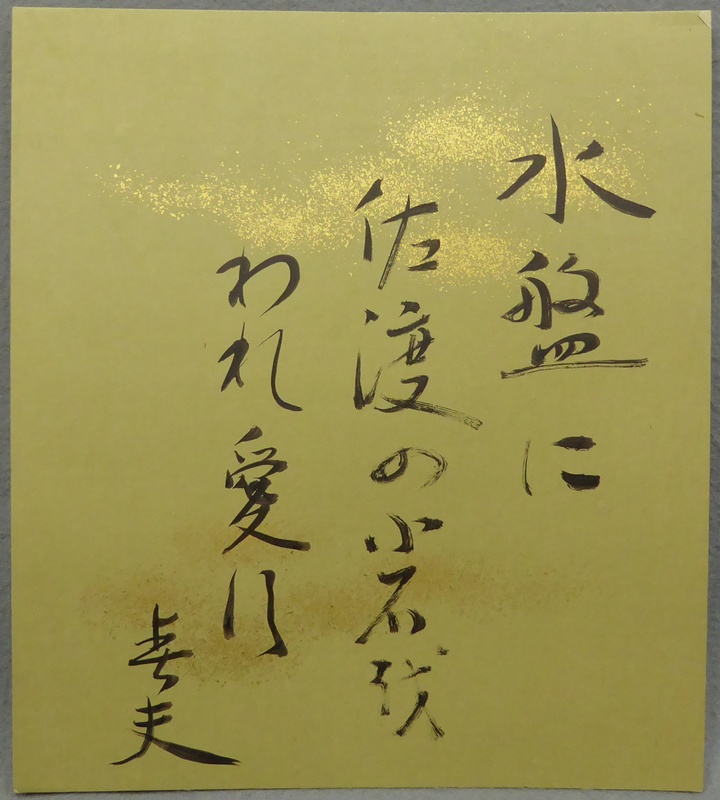 水盤に
佐渡の小石を
われ愛す